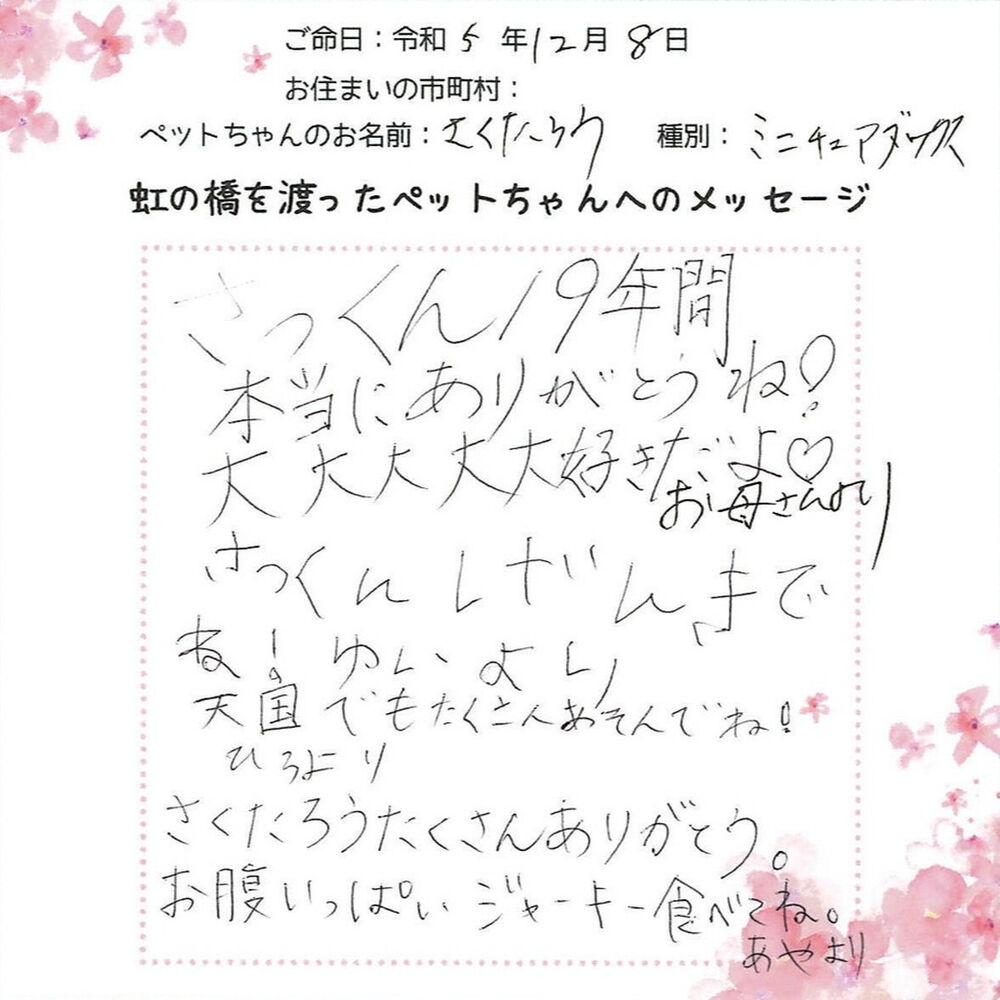 ご命日：令和5年12月8日
お住まいの市町村：
ペットちゃんのお名前：さくたろう 種別：ミニチュアダックス
虹の橋を渡ったペットちゃんへのメッセージ
さっくん19年間
本当にありがとうね！
大大大大大好きだよ♡
お母さんより
さっくんしげんまで
ね！ゆいより
天国でもたくさんあそんでね！
ひろより
さくたろうたくさんありがとう。
お腹いっぱいジャーキー食べてね。
あやより